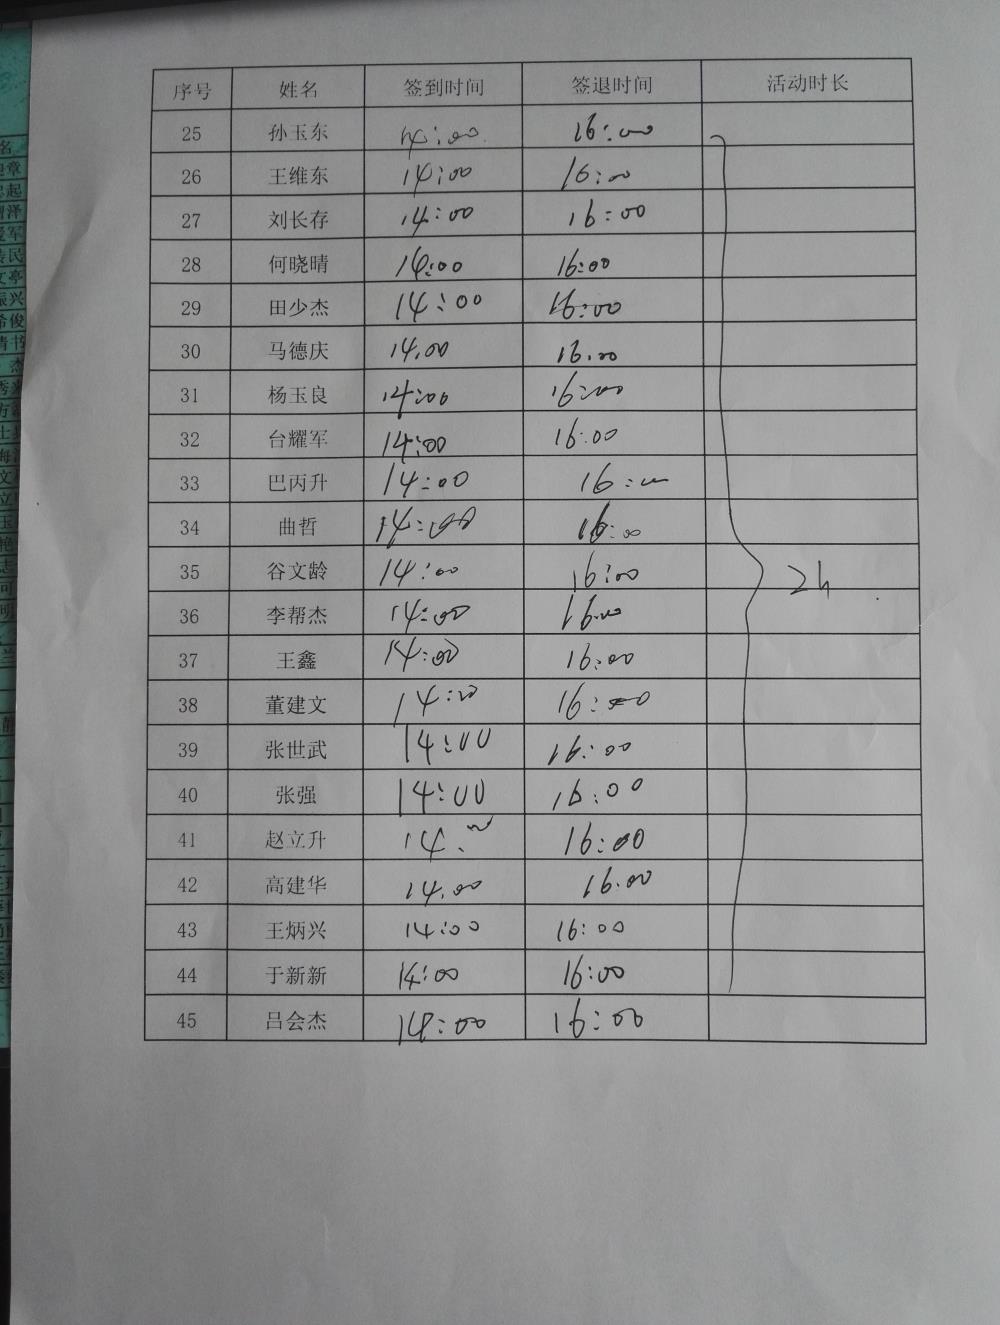 序号 姓名 签到时间 签退时间 活动时长
25 孙玉东 14:00 16:00
26 王维东 14:00 16:00
27 刘长存 14:00 16:00
28 何晓晴 14:00 16:00
29 田少杰 14:00 16:00
30 马德庆 14.00 16.00
31 杨玉良 14:00 16:00
32 台耀军 14:00 16:00
33 巴丙升 14:00 16:00
34 曲哲 14:00 16:00
35 谷文龄 14:00 16:00 2h
36 李帮杰 14:00 16:00
37 王鑫 14:00 16:00
38 董建文 14:00 16:00
39 张世武 14:00 16:00
40 张强 14:00 16:00
41 赵立升 14:00 16:00
42 高建华 14.00 16.00
43 王炳兴 14:00 16:00
44 于新新 14:00 16:00
45 吕会杰 14:00 16:00